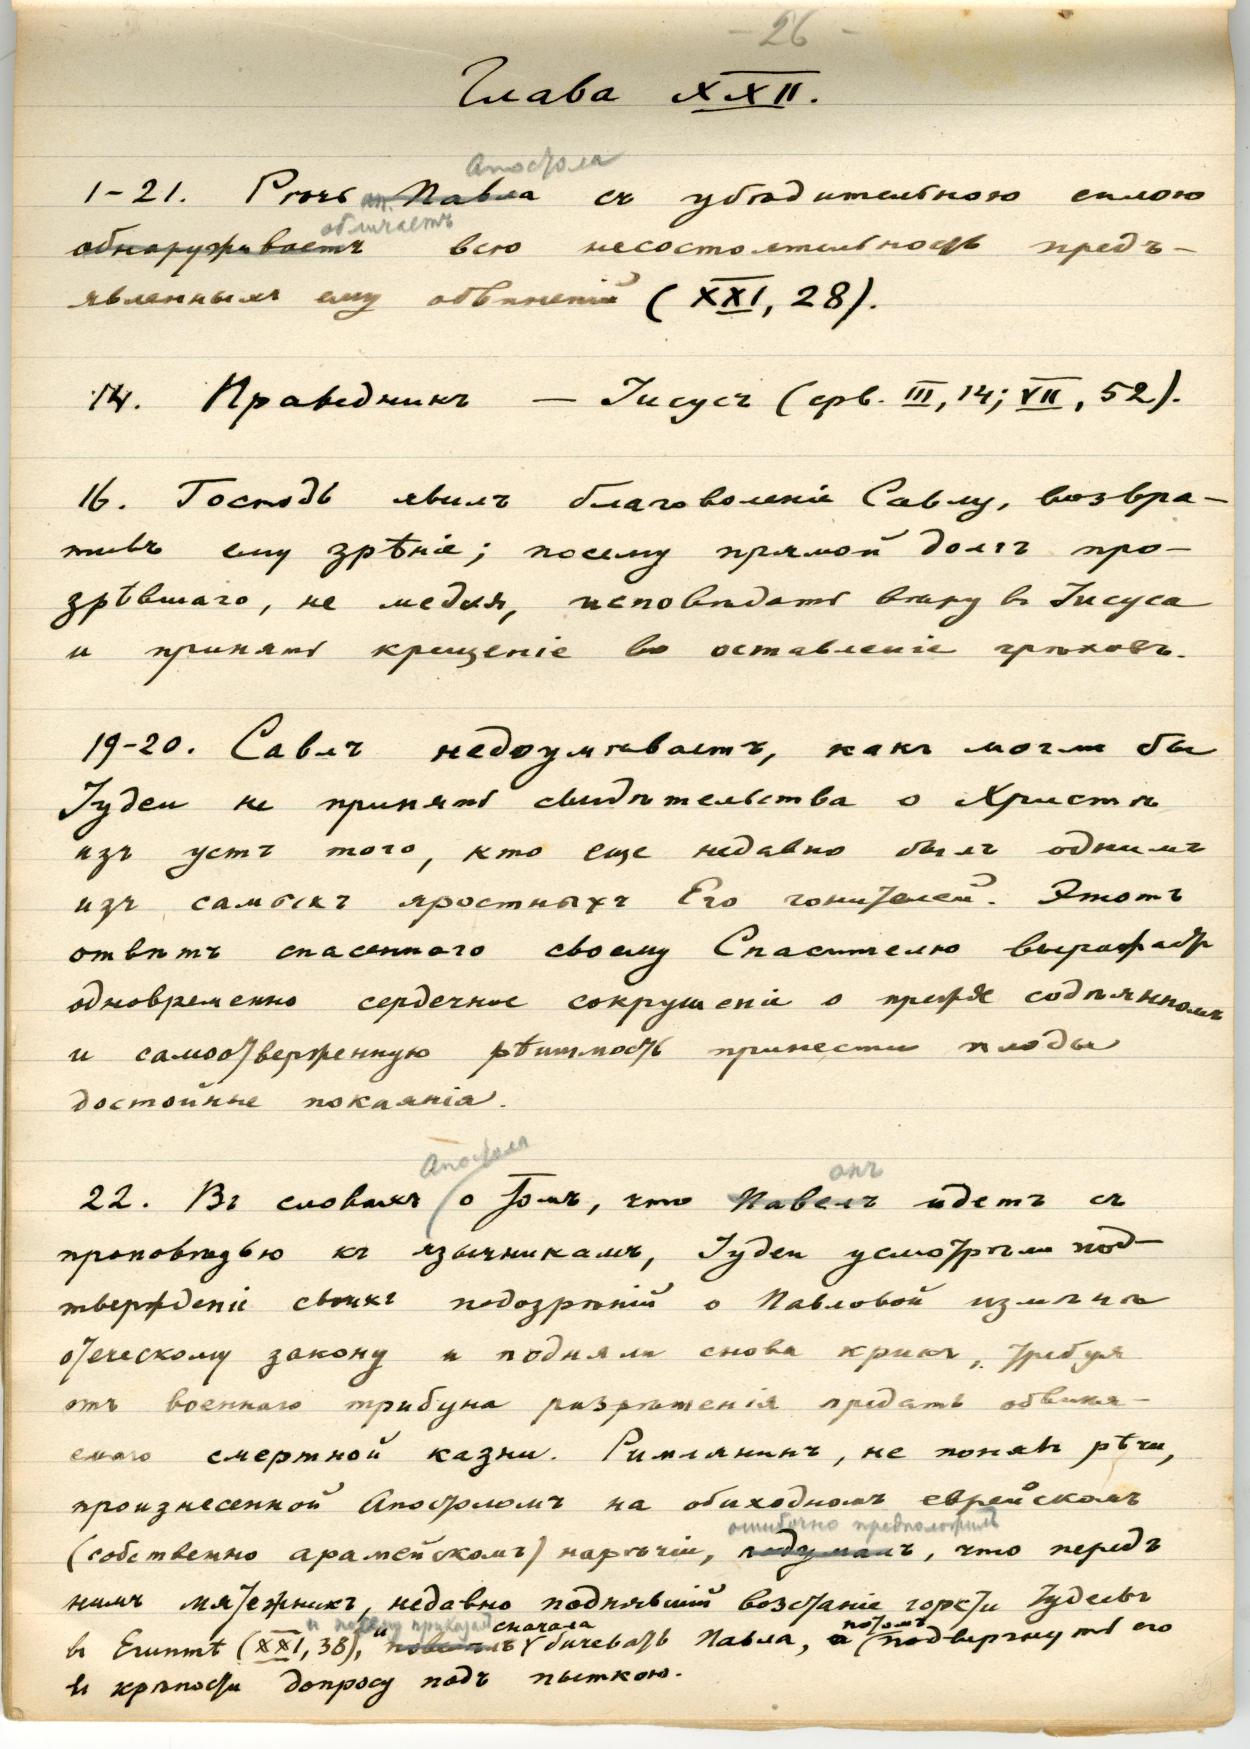 - 26 -
Глава XXII.
Апостола
1-21. Рѣчь ап. Павла съ убѣдительною силою
обличаетъ
обнаруживаетъ всю несостоятельность предъ-
явленныхъ ему обвиненій (XXI, 28).
14. Праведникъ — Іисусъ (срв. III, 14; VII, 52).
16. Господь явилъ благоволеніе Савлу, возвра-
тивъ ему зрѣніе; посему прямой долгъ про-
зрѣвшаго, не медля, исповѣдать вѣру въ Іисуса
и принять крещеніе во оставленіе грѣховъ.
19-20. Савлъ недоумѣваетъ, какъ могли бы
Іудеи не принять свидѣтельства о Христѣ
изъ устъ того, кто еще недавно былъ однимъ
изъ самыхъ яростныхъ Его гонителей. Этотъ
отвѣтъ спасеннаго своему Спасителю выражаетъ
одновременно сердечное сокрушеніе о прежде содѣянномъ
и самоотверженную рѣшимость принести плоды
достойные покаянія.
Апостола онъ
22. Въ словахъ о томъ, что Павелъ идетъ съ
проповѣдью къ язычникамъ, Іудеи усмотрѣли под-
твержденіе своихъ подозрѣній о Павловой измѣнѣ
отеческому закону и подняли снова крикъ, требуя
отъ военнаго трибуна разрѣшенія предать обвиня-
емаго смертной казни. Римлянинъ, не понявъ рѣчи,
произнесенной Апостоломъ на обиходномъ еврейскомъ
ошибочно предположилъ
(собственно арамейскомъ) нарѣчіи, подумалъ, что передъ
нимъ мятежникъ, недавно поднявшій возстаніе горсти Іудеевъ
и потому приказалъ сначала потомъ
въ Египтѣ (XXI, 38), и повелѣлъ бичевать Павла, а подвергнуть его
въ крѣпости допросу подъ пыткою.